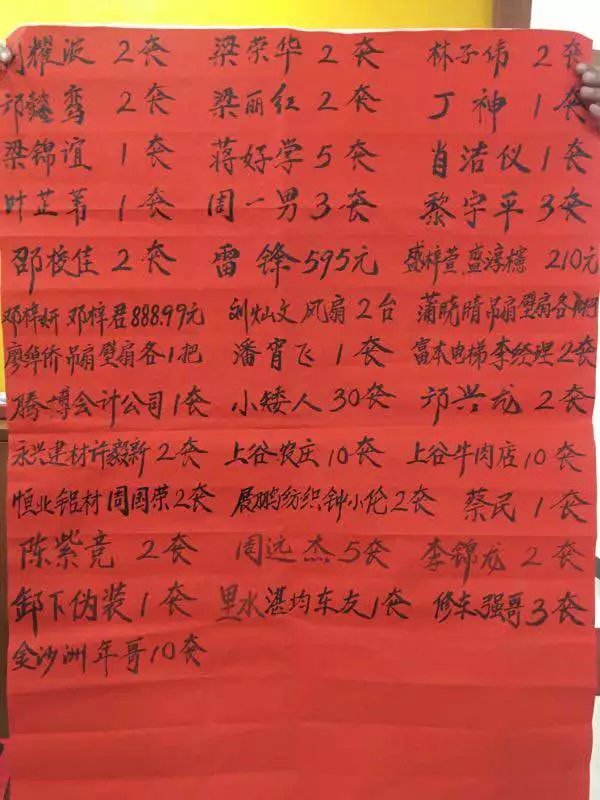 刘耀波 2套 梁荣华 2套 林子伟 2套
邱懿鸾 2套 梁丽红 2套 丁神 1套
梁锦谊 1套 蒋好学 5套 肖洁仪 1套
叶芷苇 1套 周一男 3套 黎宇平 3套
邵校佳 2套 雷锋 595元 盛梓萱 盛淳樾 210元
邓梓妍 邓梓君 888.99元 刘灿文 风扇 2台 蒲晓晴 吊扇 壁扇各
廖绰侨 吊扇 壁扇各1把 潘宵飞 1套 富本电梯李经理 2套
腾博会计公司 1套 小矮人 30套 邝兴龙 2套
永兴建材许毅新 2套 上谷农庄 10套 上谷牛肉店 10套
恒业铝材 周国荣 2套 展鹏纺织钟小伦 2套 蔡民 1套
陈紫竞 2套 周远杰 5套 李锦龙 2套
卸下伪装 1套 里水湛均车友 1套 修车强哥 3套
金沙洲年哥 10套